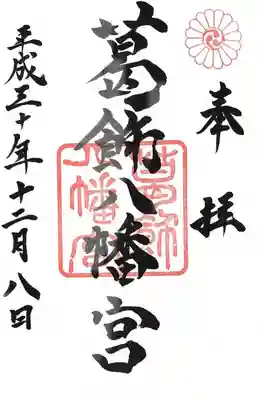 奉拝
葛飾八幡宮
平成三十年十二月八日
葛飾
八幡宮